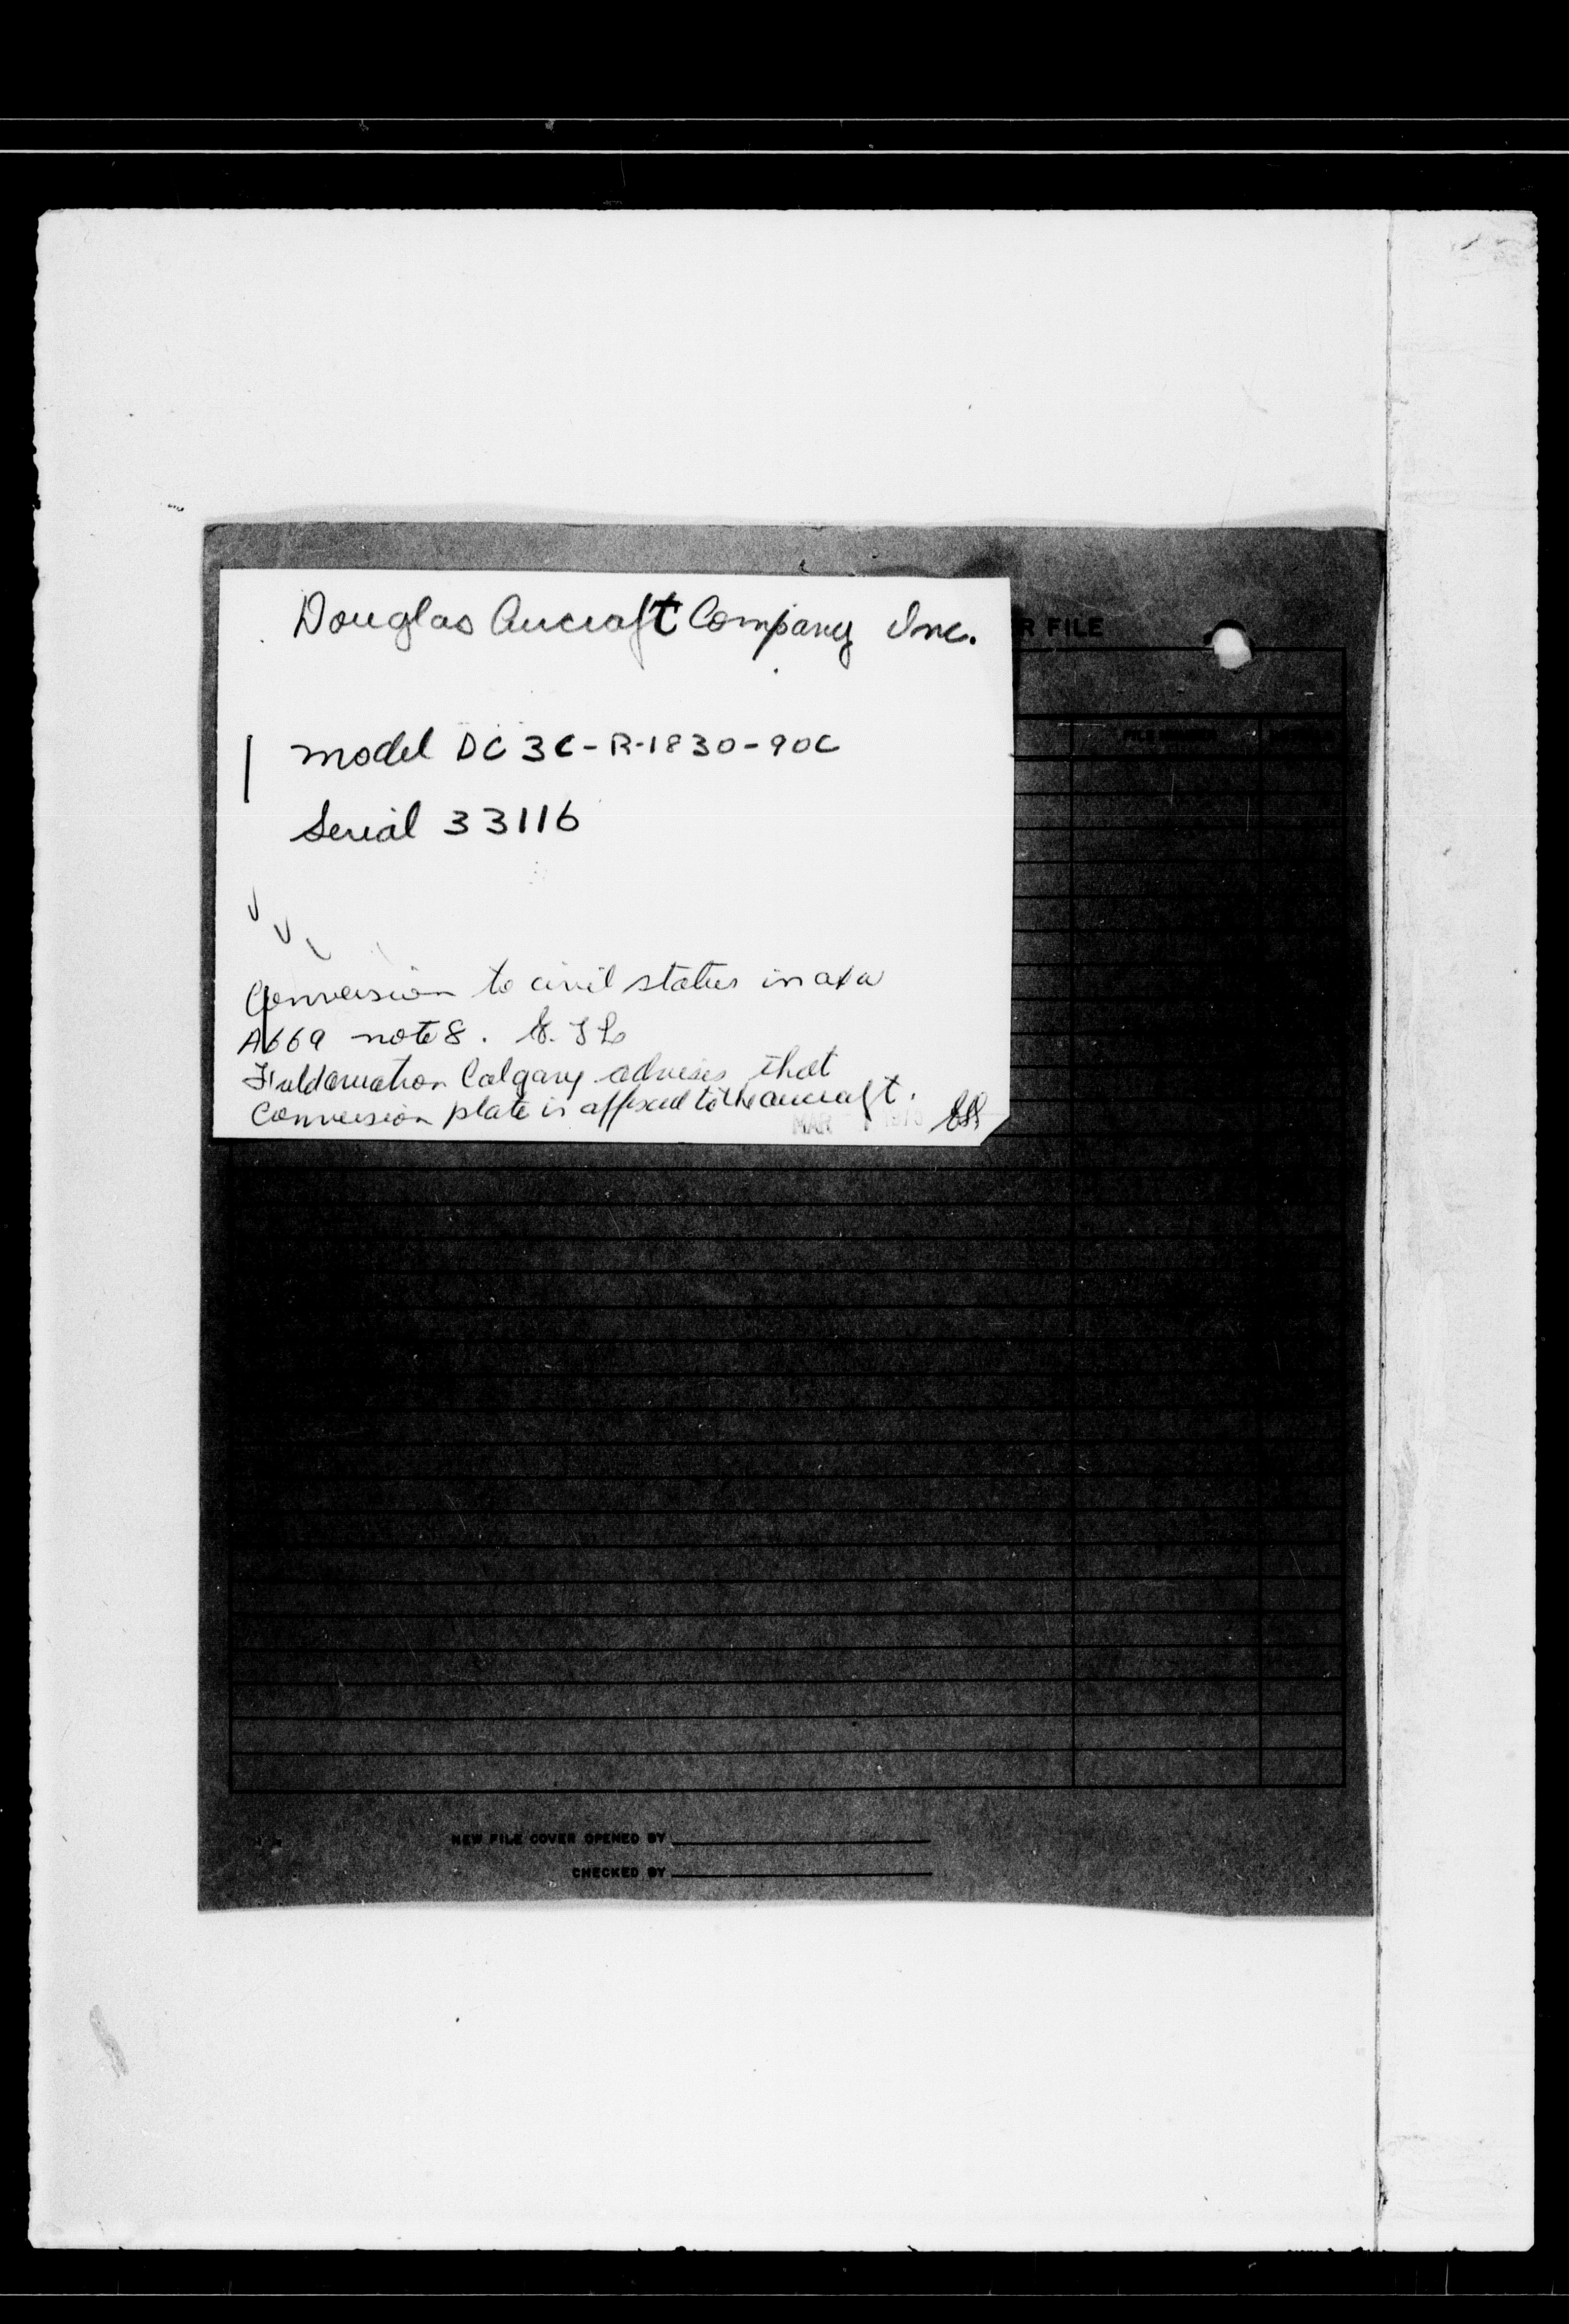 Douglas Aircraft Company Inc.
R FILE
FILE NUMBER
model DC3C-R-1830-90C
Serial 33116
Conversion to civil status in a/w
A669 note 8.
Calgary advises that
Conversion plate is affixed to the aircraft.
MAR 1975
NEW FILE COVER OPENED BY
CHECKED BY